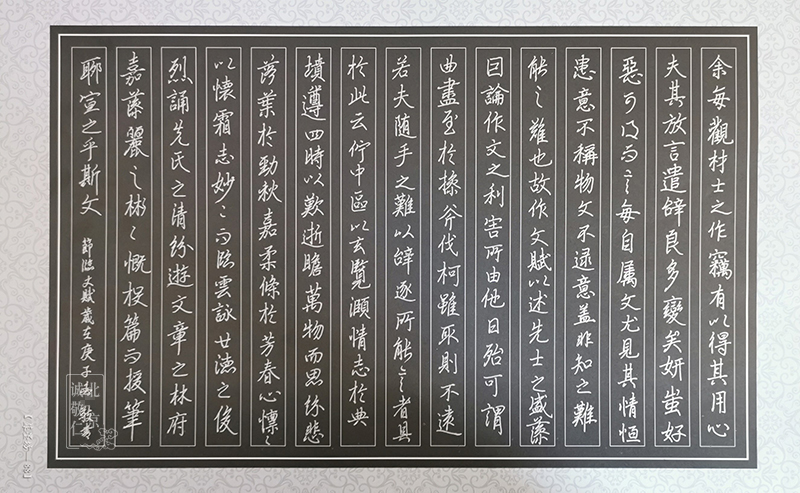 余每觀材士之作竊有以得其用心
夫其放言遣辞良多變矣妍蚩好
惡可得而言每自属文尤見其情恒
患意不稱物文不逮意盖非知之難
能之難也故作文賦以述先士之盛藻
因論作文之利害所由他日殆可謂
曲盡至於操斧伐柯雖取則不遠
若夫随手之難以辞逐所能言者具
於此云佇中區以玄覽頤情志於典
墳遵四時以歎逝瞻萬物而思紛悲
落葉於勁秋嘉柔條於芳春心懍〻
以懷霜志妙〻而臨雲詠世德之俊
烈誦先氏之清紛遊文章之林府
嘉藻麗之彬〻慨投篇而援筆
聊宣之乎斯文
節臨文賦歲在庚子
诚敬仁